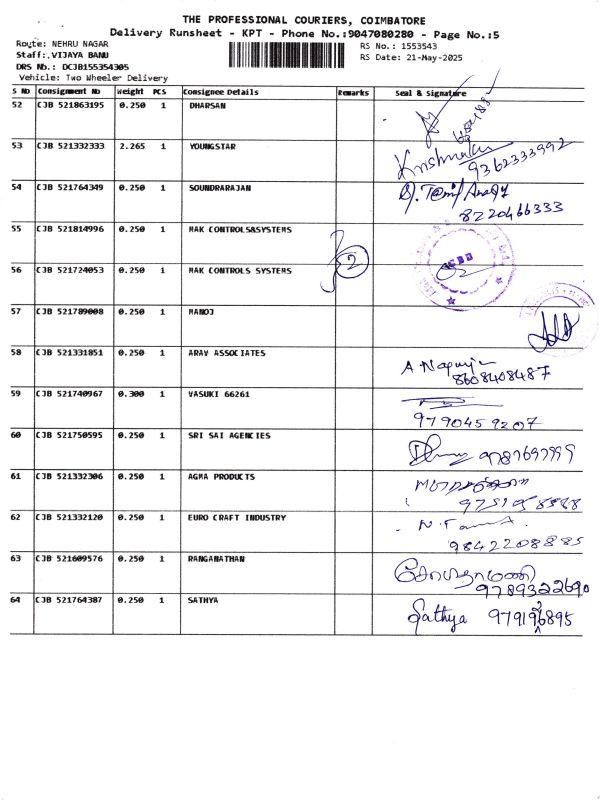 THE PROFESSIONAL COURIERS, COIMBATORE
Delivery Runsheet - KPT - Phone No.:9047080280 - Page No.:5
Route: NEHRU NAGAR
RS No.: 1553543
Staff: VIJAYA BANU
RS Date: 21-May-2025
DRS No.: DCJB155354305
Vehicle: Two Wheeler Delivery
S No Consignment No Weight PCS Consignee Details Remarks Seal & Signature
52 CJB 521863195 0.250 1 DHARSAN
53 CJB 521332333 2.265 1 YOUNGSTAR 9362333992
54 CJB 521764349 0.250 1 SOUNDRARAJAN
8220466333
55 CJB 521814996 0.250 1 MAK CONTROLS&SYSTEMS
2
56 CJB 521724053 0.250 1 MAK CONTROLS SYSTEMS
57 CJB 521789008 0.250 1 MANOJ
58 CJB 521331851 0.250 1 ARAV ASSOCIATES
8608408487
59 CJB 521740967 0.300 1 VASUKI 66261
9790459207
60 CJB 521750595 0.250 1 SRI SAI AGENCIES
61 CJB 521332306 0.250 1 AGMA PRODUCTS
62 CJB 521332120 0.250 1 EURO CRAFT INDUSTRY
9842208885
63 CJB 521609576 0.250 1 RANGANATHAN
9789322690
64 CJB 521764387 0.250 1 SATHYA Sathya